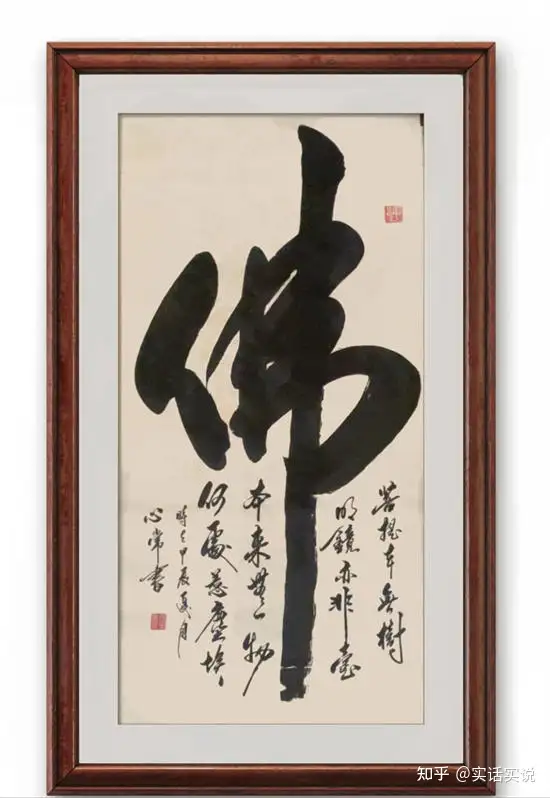 佛
菩提本無樹
明鏡亦非臺
本來無一物
何處惹塵埃
時在甲辰夏月
心常書
知乎 @实话实说